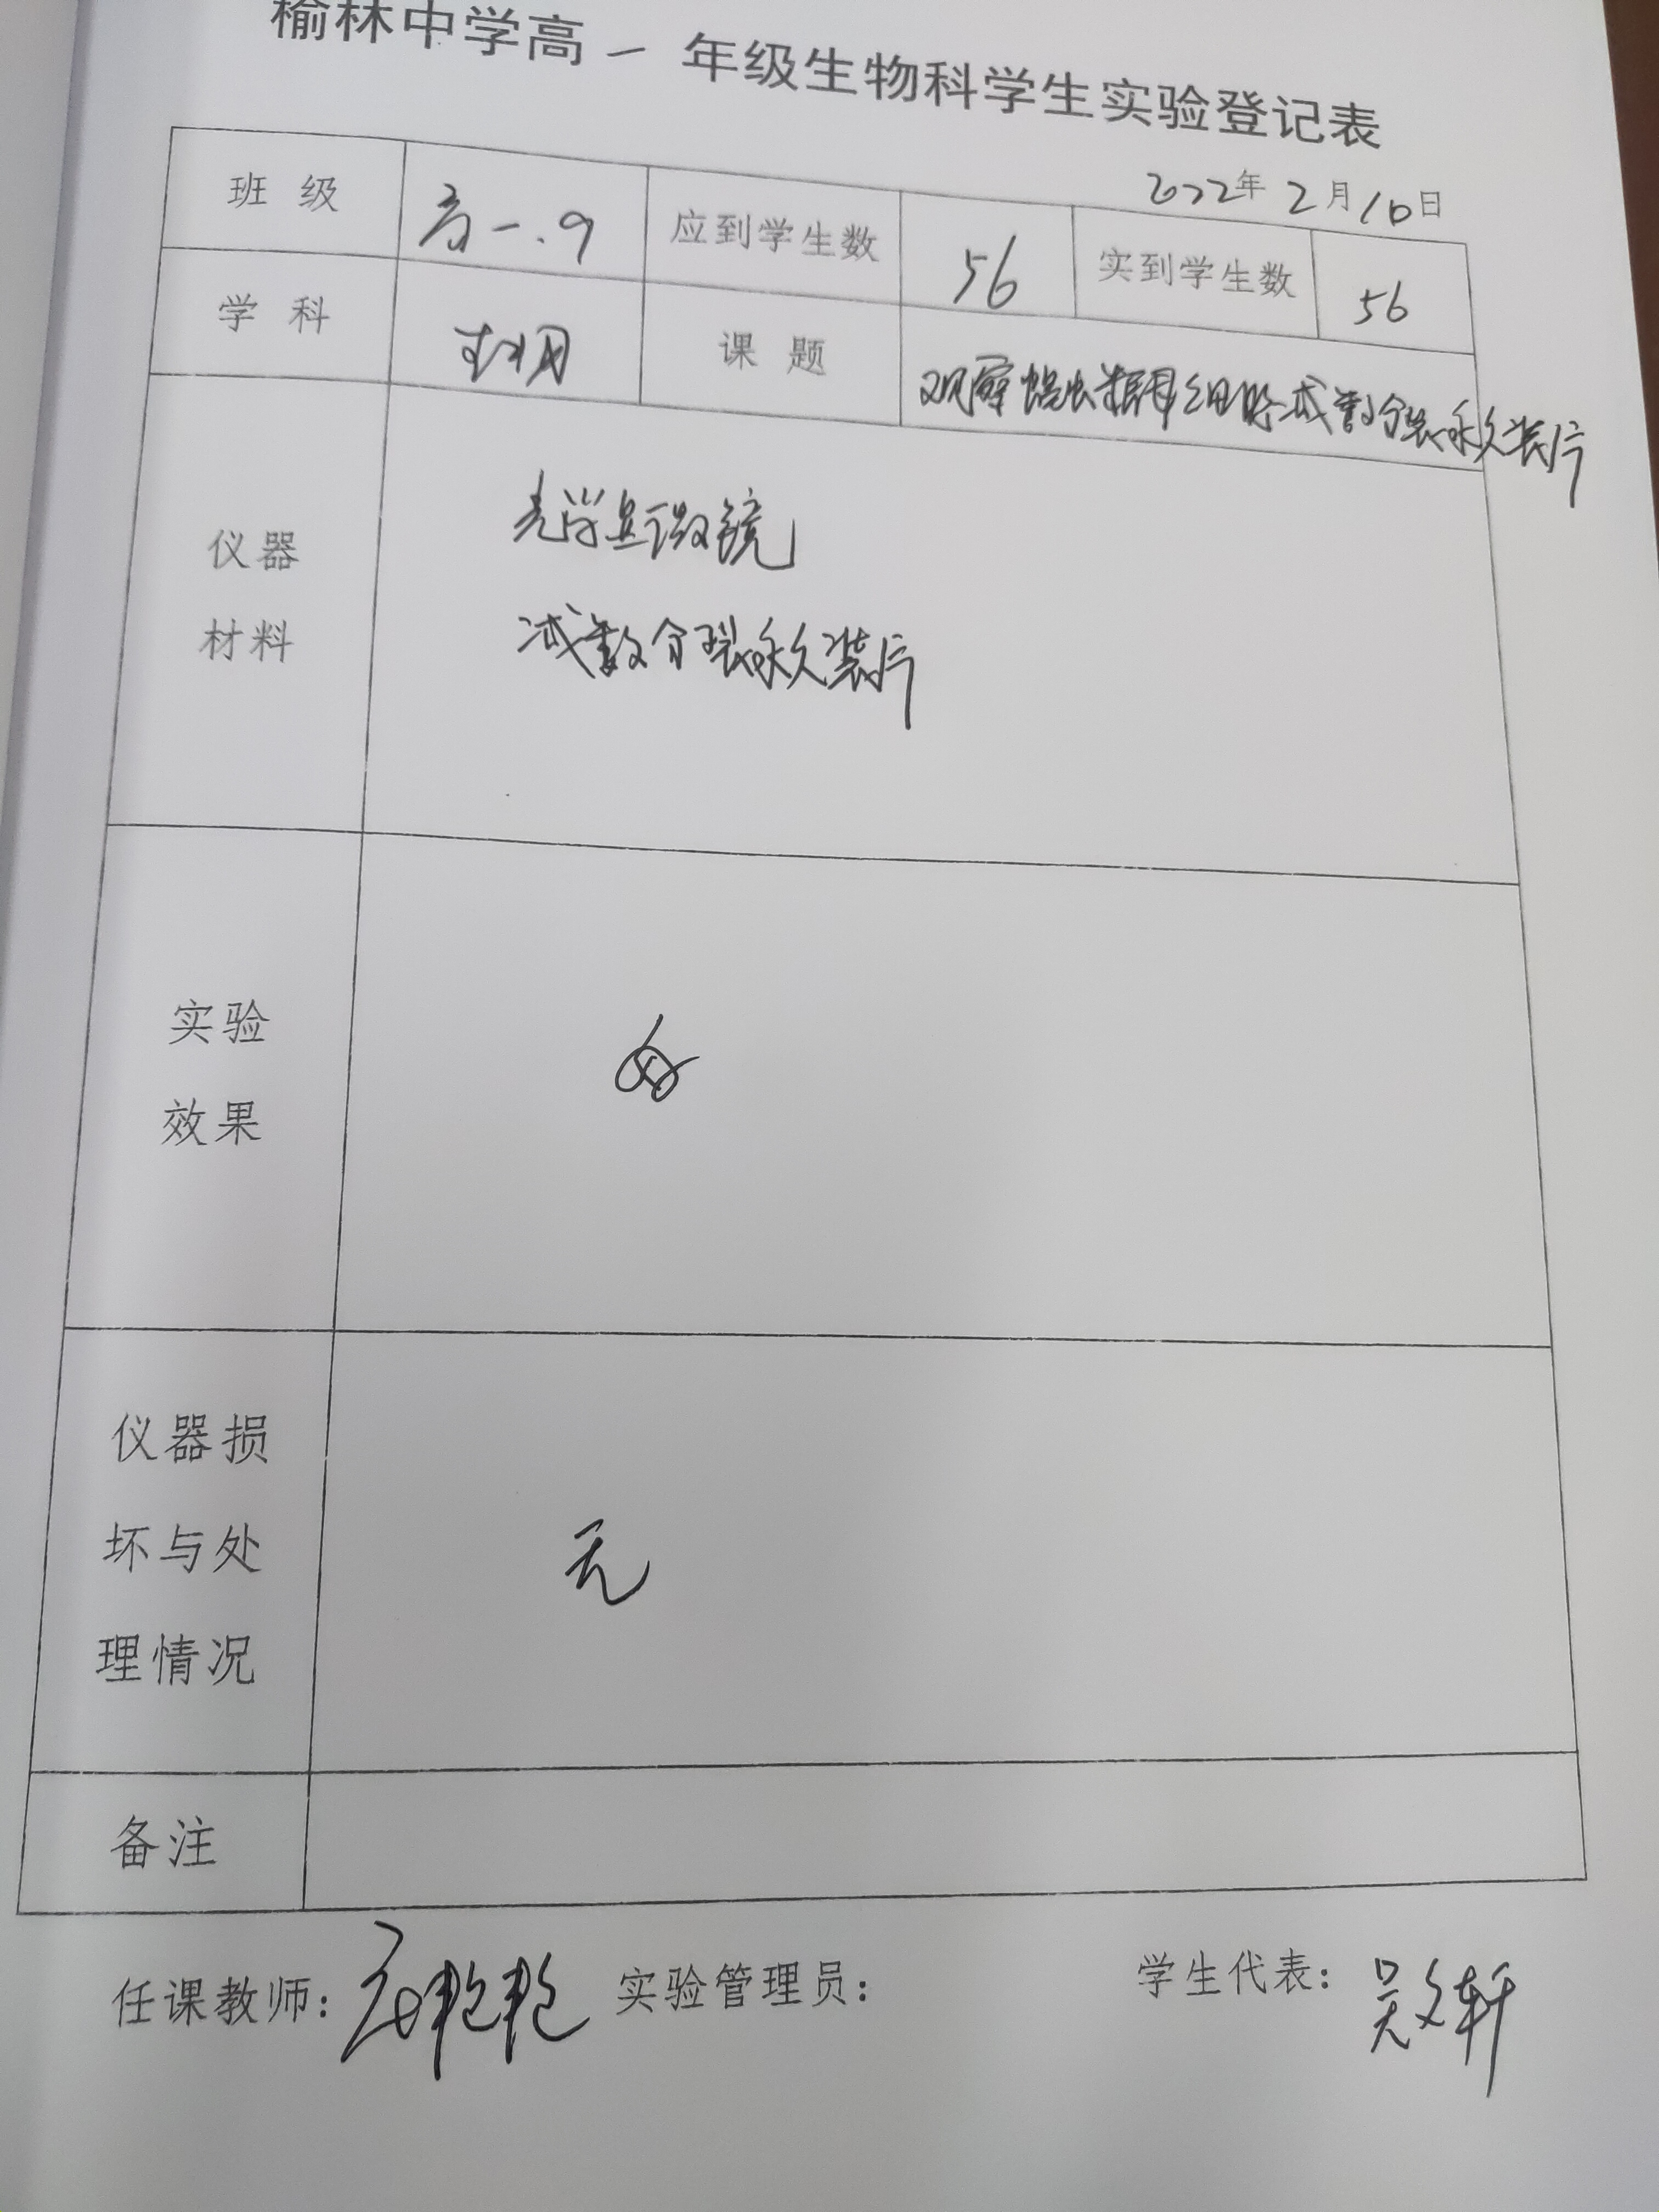 榆林中学高一年级生物科学生实验登记表
2022年2月10日
班级 高一.9 应到学生数 56 实到学生数 56
学科 生物 课题 观察蝗虫精母细胞减数分裂永久装片
仪器
材料
光学显微镜
减数分裂永久装片
实验
效果
好
仪器损
坏与处
理情况
无
备注
任课教师: 实验管理员: 学生代表: 吴文轩